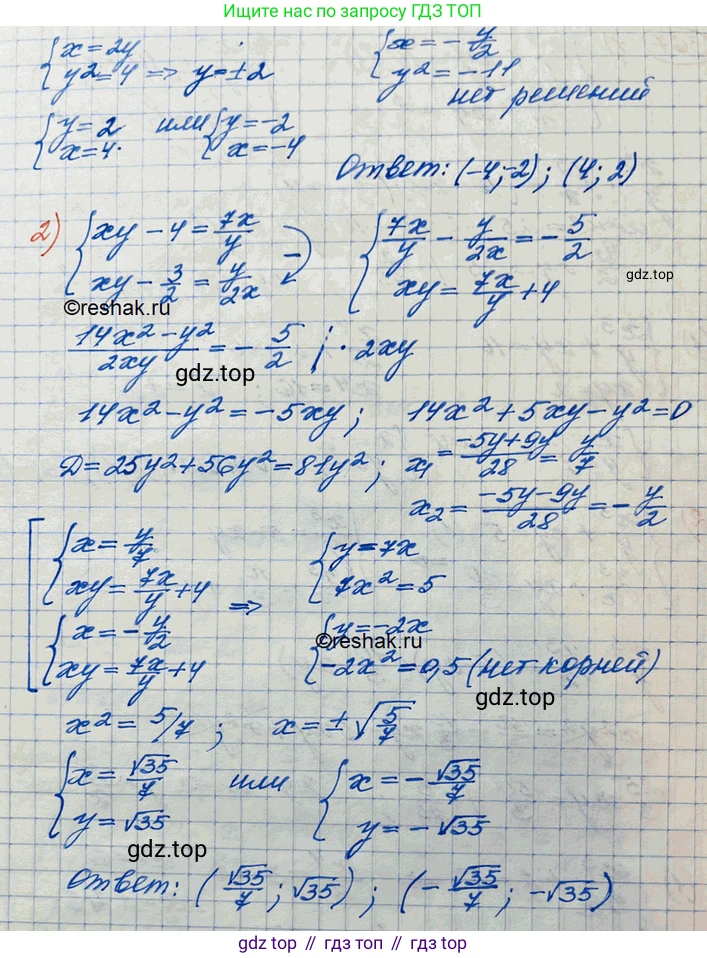 Ищите нас по запросу ГДЗ ТОП
{x = 2y
{y² = 4 => y = ±2
{x = -y/2
{y² = -11
нет решений
{y = 2
{x = 4.
или {y = -2
{x = -4
Ответ: (-4; -2); (4; 2)
2) {xy - 4 = 7x/y
{xy - 3/2 = y/2x
-
{7x/y - y/2x = -5/2
{xy = 7x/y + 4
gdz.top
©reshak.ru
(14x² - y²)/2xy = -5/2 | · 2xy
gdz.top
14x² - y² = -5xy; 14x² + 5xy - y² = 0
D = 25y² + 56y² = 81y²; x₁ = (-5y + 9y)/28 = y/7
x₂ = (-5y - 9y)/28 = -y/2
[{x = y/7
{xy = 7x/y + 4
{x = -y/2
{xy = 7x/y + 4
=>
{y = 7x
{7x² = 5
{y = -2x
{-2x² = 0,5 (нет корней)
©reshak.ru
gdz.top
x² = 5/7; x = ±√(5/7)
{x = √35/7
{y = √35
или
{x = -√35/7
{y = -√35
gdz.top
Ответ: (√35/7; √35); (-√35/7; -√35)
gdz.top // гдз топ // гдз.топ